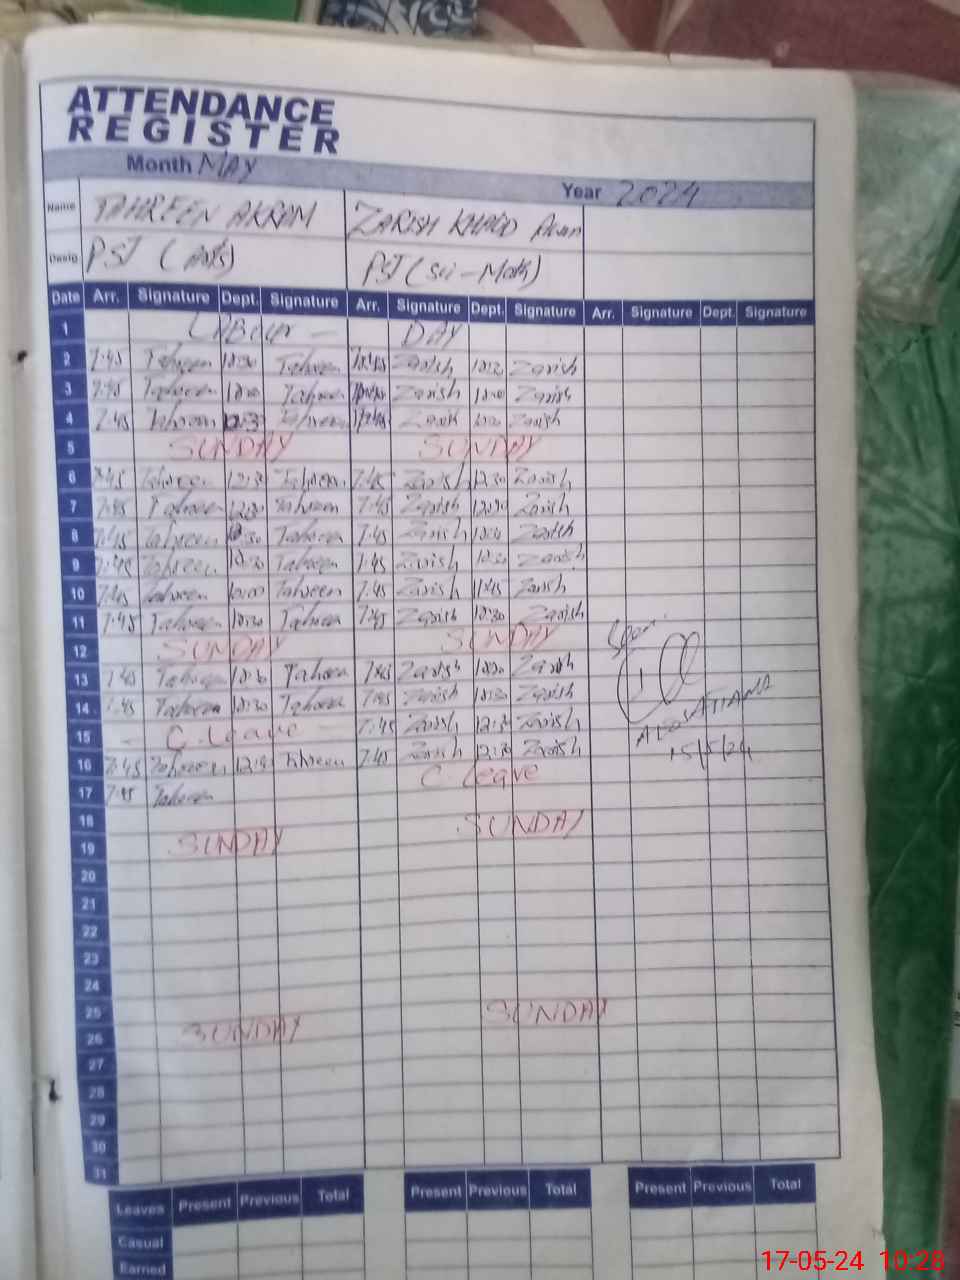 ATTENDANCE
REGISTER
Month MAY
Year 2024
Name TAHREEN AKRAM ZARISH KHALID
Desig. PST (Arts) PST (Sci-Math)
Date Arr. Signature Dept. Signature Arr. Signature Dept. Signature Arr. Signature Dept. Signature
1 LABOUR - DAY
2 7:45 Tahreen 12:30 Tahreen Zarish Zarish
3 7:45 Tahreen 12:00 Tahreen Zarish 12:00 Zarish
4 7:45 Tahreen 12:30 Tahreen Zarish Zarish
5 SUNDAY SUNDAY
6 7:45 Tahreen 12:30 Tahreen 7:45 Zarish 12:30 Zarish
7 7:45 Tahreen 12:30 Tahreen 7:45 Zarish 12:30 Zarish
8 7:45 Tahreen 12:30 Tahreen 7:45 Zarish 12:30 Zarish
9 7:45 Tahreen 12:30 Tahreen 7:45 Zarish 12:30 Zarish
10 7:45 Tahreen 12:00 Tahreen 7:45 Zarish 11:45 Zarish
11 7:45 Tahreen 12:30 Tahreen 7:45 Zarish 12:30 Zarish
12 SUNDAY SUNDAY
13 7:45 Tahreen 12:30 Tahreen 7:45 Zarish 12:30 Zarish
14 7:45 Tahreen 12:30 Tahreen 7:45 Zarish 12:30 Zarish
15 - C. Leave - 7:45 Zarish 12:30 Zarish
15/5/24
16 7:45 Tahreen 12:30 Tahreen 7:45 Zarish 12:30 Zarish
17 7:45 Tahreen C. Leave
18
19 SUNDAY SUNDAY
20
21
22
23
24
25
26 SUNDAY SUNDAY
27
28
29
30
31
Leaves Present Previous Total Present Previous Total Present Previous Total
Casual
Earned
17-05-24 10:28